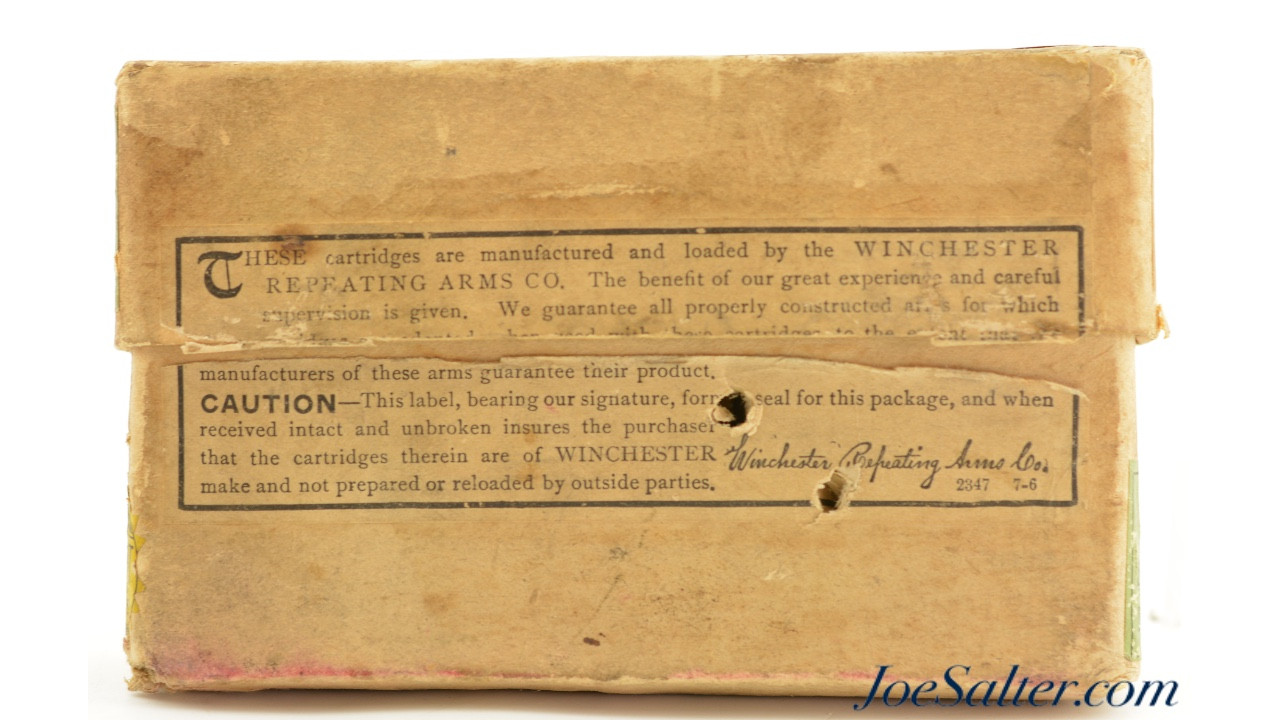 THESE cartridges are manufactured and loaded by the WINCHESTER
REPEATING ARMS CO. The benefit of our great experience and careful
supervision is given. We guarantee all properly constructed arms for which
used with these cartridges to the
manufacturers of these arms guarantee their product.
CAUTION—This label, bearing our signature, forms seal for this package, and when
received intact and unbroken insures the purchaser
that the cartridges therein are of WINCHESTER
make and not prepared or reloaded by outside parties.
Winchester Repeating Arms Co.
2347 7-6
JoeSalter.com